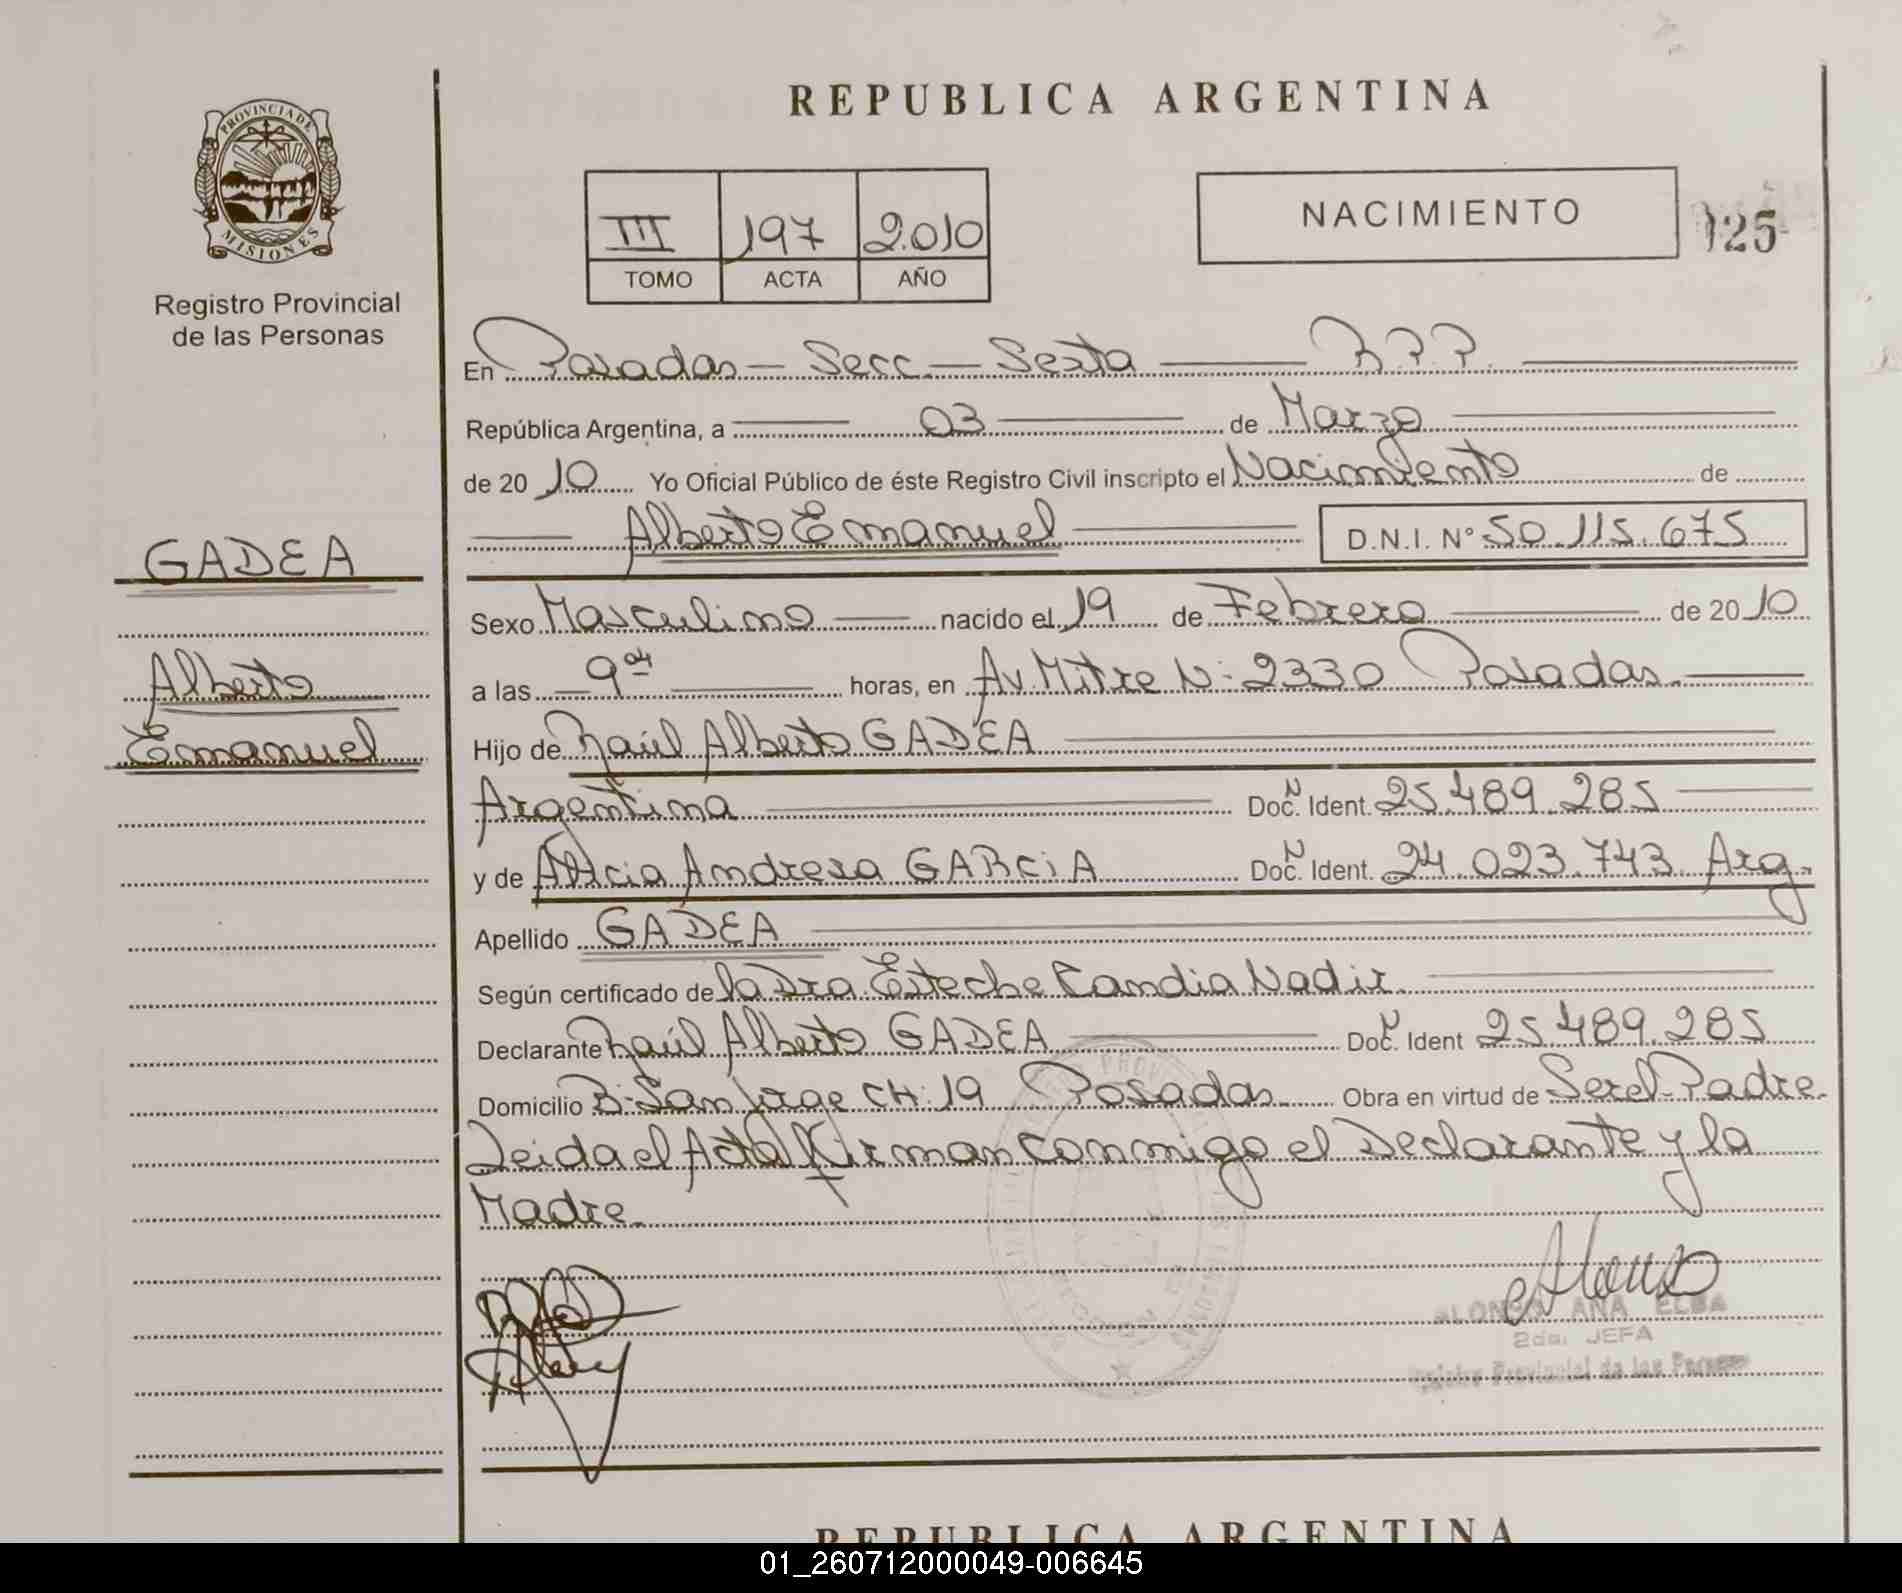 REPUBLICA ARGENTINA
PROVINCIA DE
MISIONES
Registro Provincial
de las Personas
III 197 2.010
TOMO ACTA AÑO
NACIMIENTO
125
En Posadas - Secc. - Sexta R.P.P.
República Argentina, a 03 de Marzo
de 20 10 Yo Oficial Público de éste Registro Civil inscripto el Nacimiento de
Alberto Emanuel D.N.I. Nº 50.115.675
GADEA
Alberto
Emanuel
Sexo Masculino nacido el 19 de Febrero de 20 10
a las 9 horas, en Av. Mitre N: 2330 Posadas.
Hijo de Raúl Alberto GADEA
Argentina Doc. N Ident. 25.489.285
y de Alicia Andresa GARCIA Doc. N Ident. 24.023.743 Arg.
Apellido GADEA
Según certificado de la Dra Esteche Candia Nadir.
Declarante Raúl Alberto GADEA Doc. N Ident 25.489.285
Domicilio B: San Jorge CH: 19 Posadas. Obra en virtud de Ser el Padre
Leida el Acta Firman Conmigo el Declarante y la
Madre.
Alonso
ALONSO ANA ELBA
2da. JEFA
Registro Provincial de las Personas
REPUBLICA ARGENTINA
01_260712000049-006645